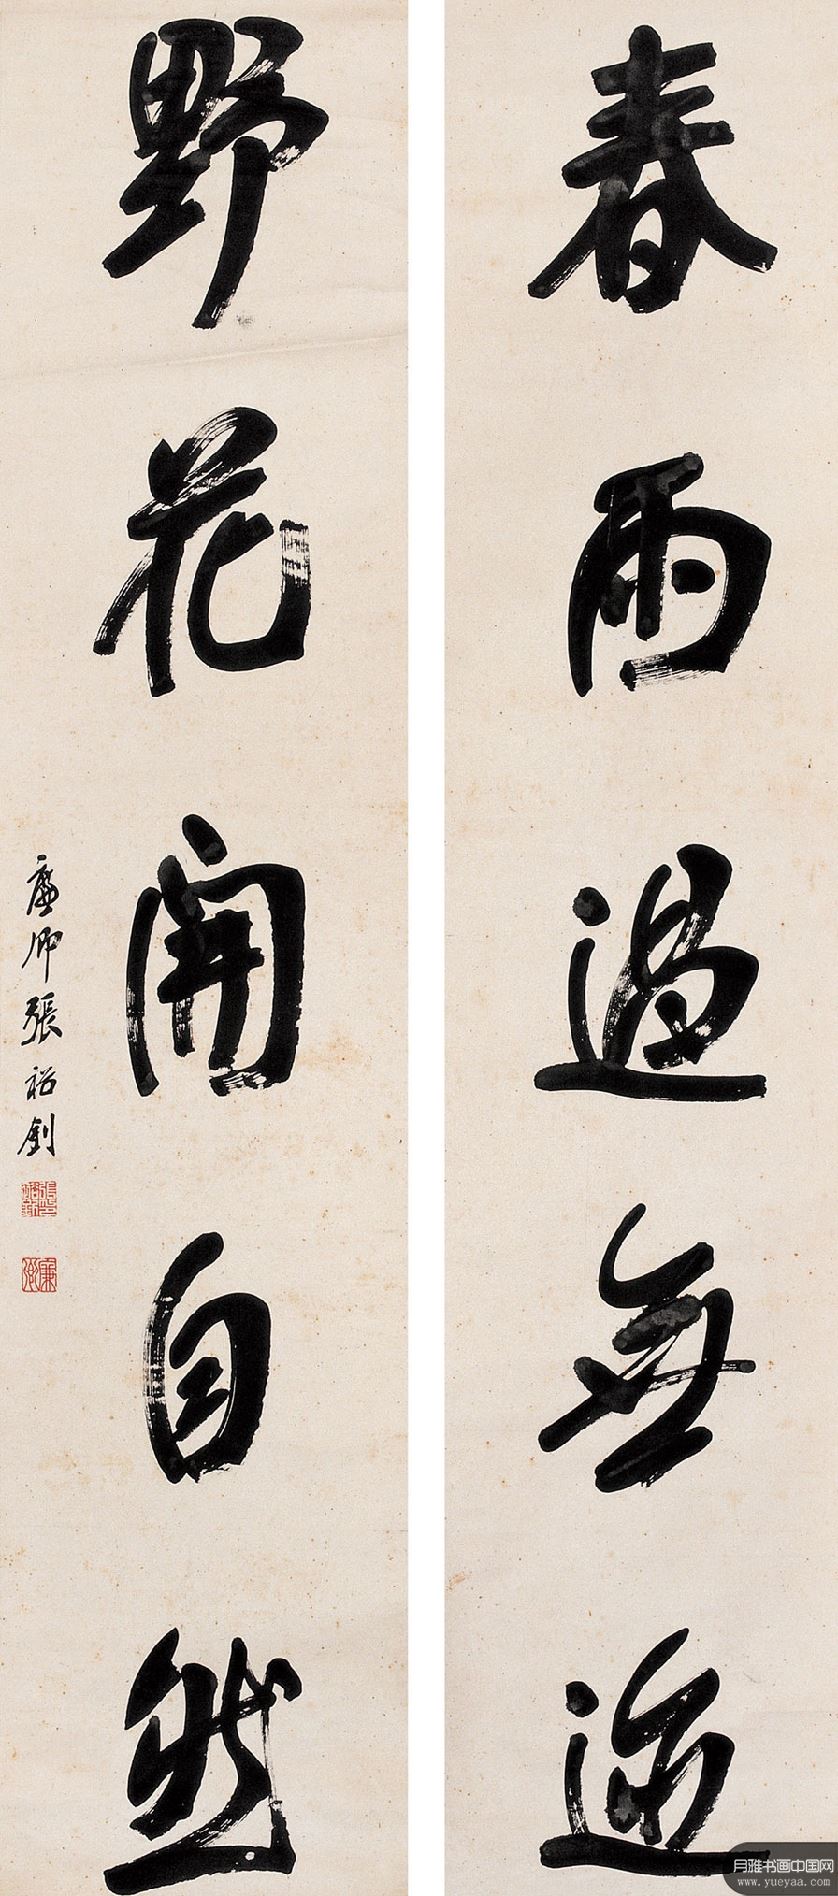 春雨過無迹
野花開自然
廉卿張裕釗
月雅书画中国网
www.yueyaa.com